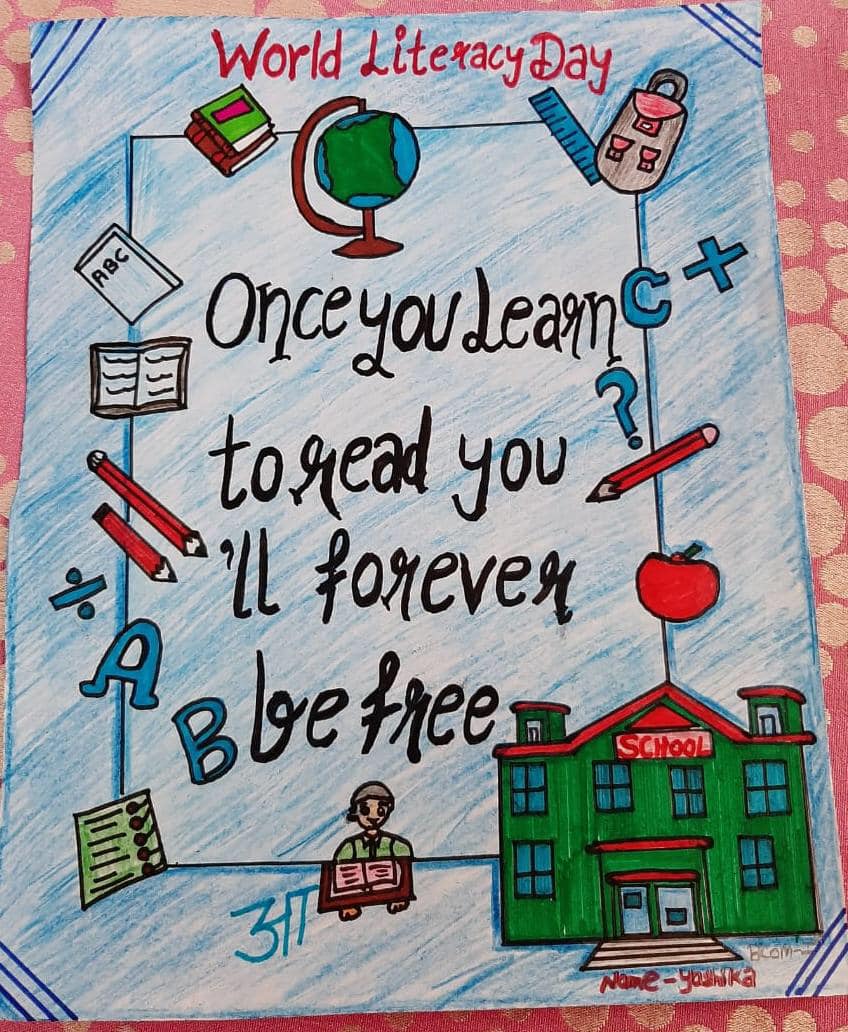 World Literacy Day
ABC
Once you Learn
C +
to read you
?
'll forever
÷
A
be free
B
SCHOOL
आ
Name - Yashika